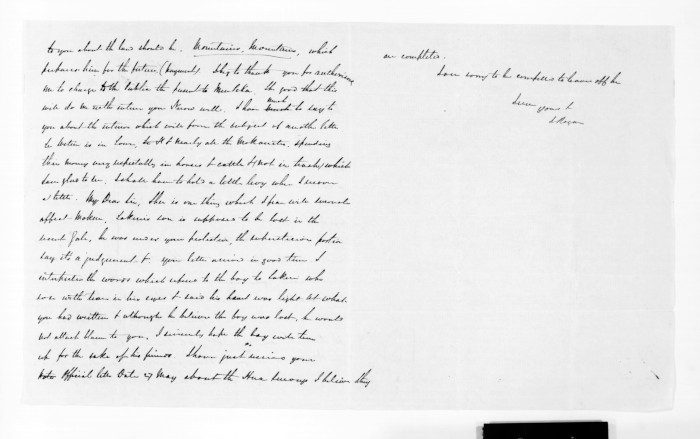 to you about the land should be. Mountains, Mountains, which
prepares him for the future (payment). I beg to thank you for authorising
me to charge to the Public the present to Muuloka. the good that this
will do in the interior you know well. I have much to say to
you about the interior which will form the subject of another letter
Te Wetini is in town, he & nearly all the Mokau natives, spending
their money very respectably in horses & cattle & (not in trade) which
I am glad to see. I shall have to hold a little levy when I recover
a little. My Dear Sir, there is one thing which I fear will seriously
affect Mokau, Takerei's son is supposed to be lost in the
recent Gale, he was under your protection, the superstitious portion
say it's a judgement & your letter arrived in good time I
interpreted the words which referred to the boy to Takerei who
rose with tears in his eyes & said his heart was light at what
you had written & although he believed the boy was lost, he would
not attach blame to you, I sincerely hope the boy will turn
up for the sake of his friends. I have just received your
Official letter Dated 27 May about the Hua survey I believe they
are completed.
I am sorry to be compelled to leave off here
Dear
yours &
J Rogan